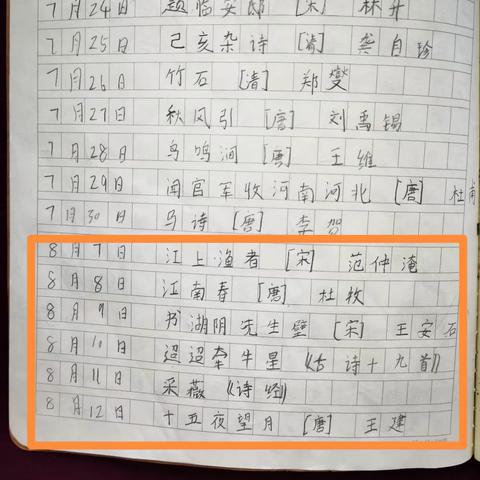 7月24日 题临安邸 [宋] 林升
7月25日 己亥杂诗 [清] 龚自珍
7月26日 竹石 [清] 郑燮
7月27日 秋风引 [唐] 刘禹锡
7月28日 鸟鸣涧 [唐] 王维
7月29日 闻官军收河南河北 [唐] 杜甫
7月30日 马诗 [唐] 李贺
8月7日 江上渔者 [宋] 范仲淹
8月8日 江南春 [唐] 杜牧
8月9日 书湖阴先生壁 [宋] 王安石
8月10日 迢迢牵牛星 《古诗十九首》
8月11日 采薇 《诗经》
8月12日 十五夜望月 [唐] 王建